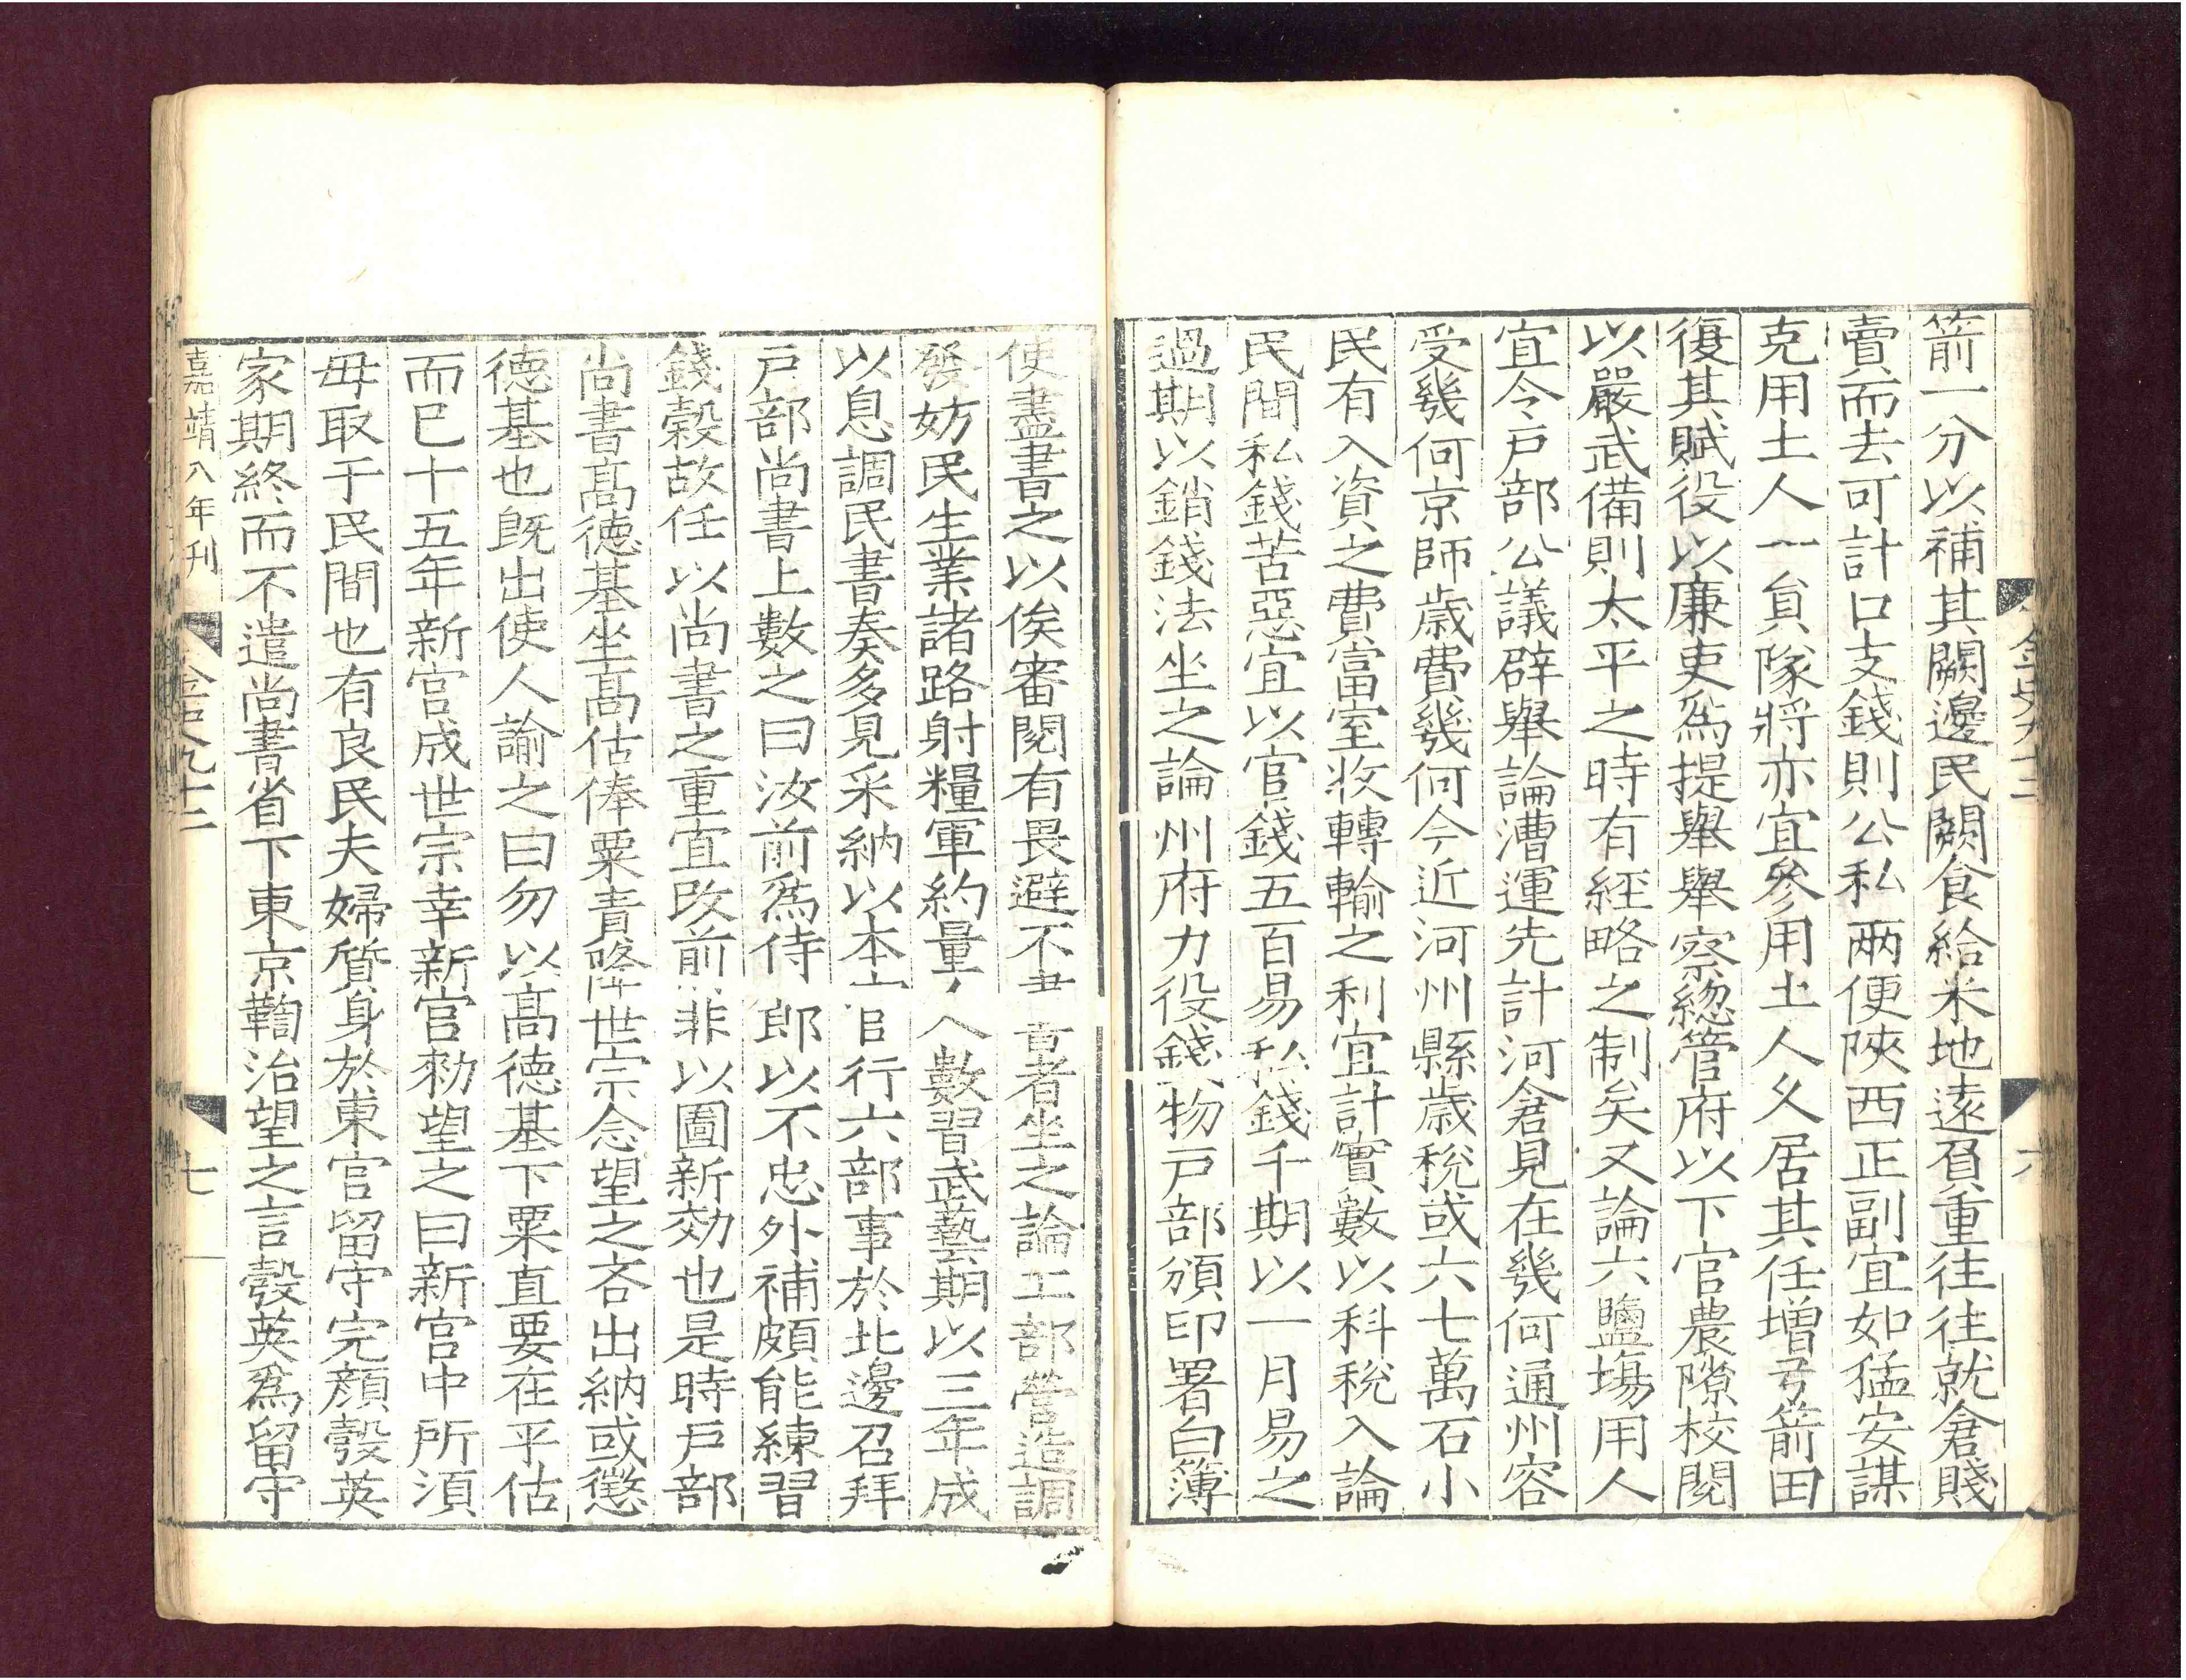 箭一分以補其闕邊民闕食給米地遠負重往往就倉賤
賣而去可計口支錢則公私兩便陝西正副宜如猛安謀
克用土人一貟隊將亦宜參用土人久居其任增弓箭田
復其賦役以廉吏爲提舉舉察緫管府以下官農隙校閱
以嚴武備則太平之時有經略之制矣又論六鹽塲用人
宜令戸部公議辟舉論漕運先計河倉見在幾何通州容
受幾何京師歲費幾何今近河州縣歲稅或六七萬石小
民有入資之費富室收轉輸之利宜計實數以科稅入論
民間私錢苦惡宜以官錢五百易私錢千期以一月易之
過期以銷錢法坐之論州府力役錢物戸部頒印署白簿
金史九十二
六
使盡書之以俟審閱有畏避不書者坐之論工部營造調
發妨民生業諸路射糧軍約量人數習武藝期以三年成
以息調民書奏多見采納以本官行六部事於北邊召拜
戸部尚書上數之曰汝前爲侍郎以不忠外補頗能練習
錢穀故任以尚書之重宜改前非以圖新効也是時戸部
尚書髙德基坐髙估俸粟責降世宗念望之吝出納或懲
德基也旣出使人諭之曰勿以髙德基下粟直要在平估
而已十五年新宮成世宗幸新宮勑望之曰新宮中所須
毋取于民間也有良民夫婦質身於東京留守完顏彀英
家期終而不遣尚書省下東京鞫治望之言彀英爲留守
嘉靖八年刊
金史九十二
七